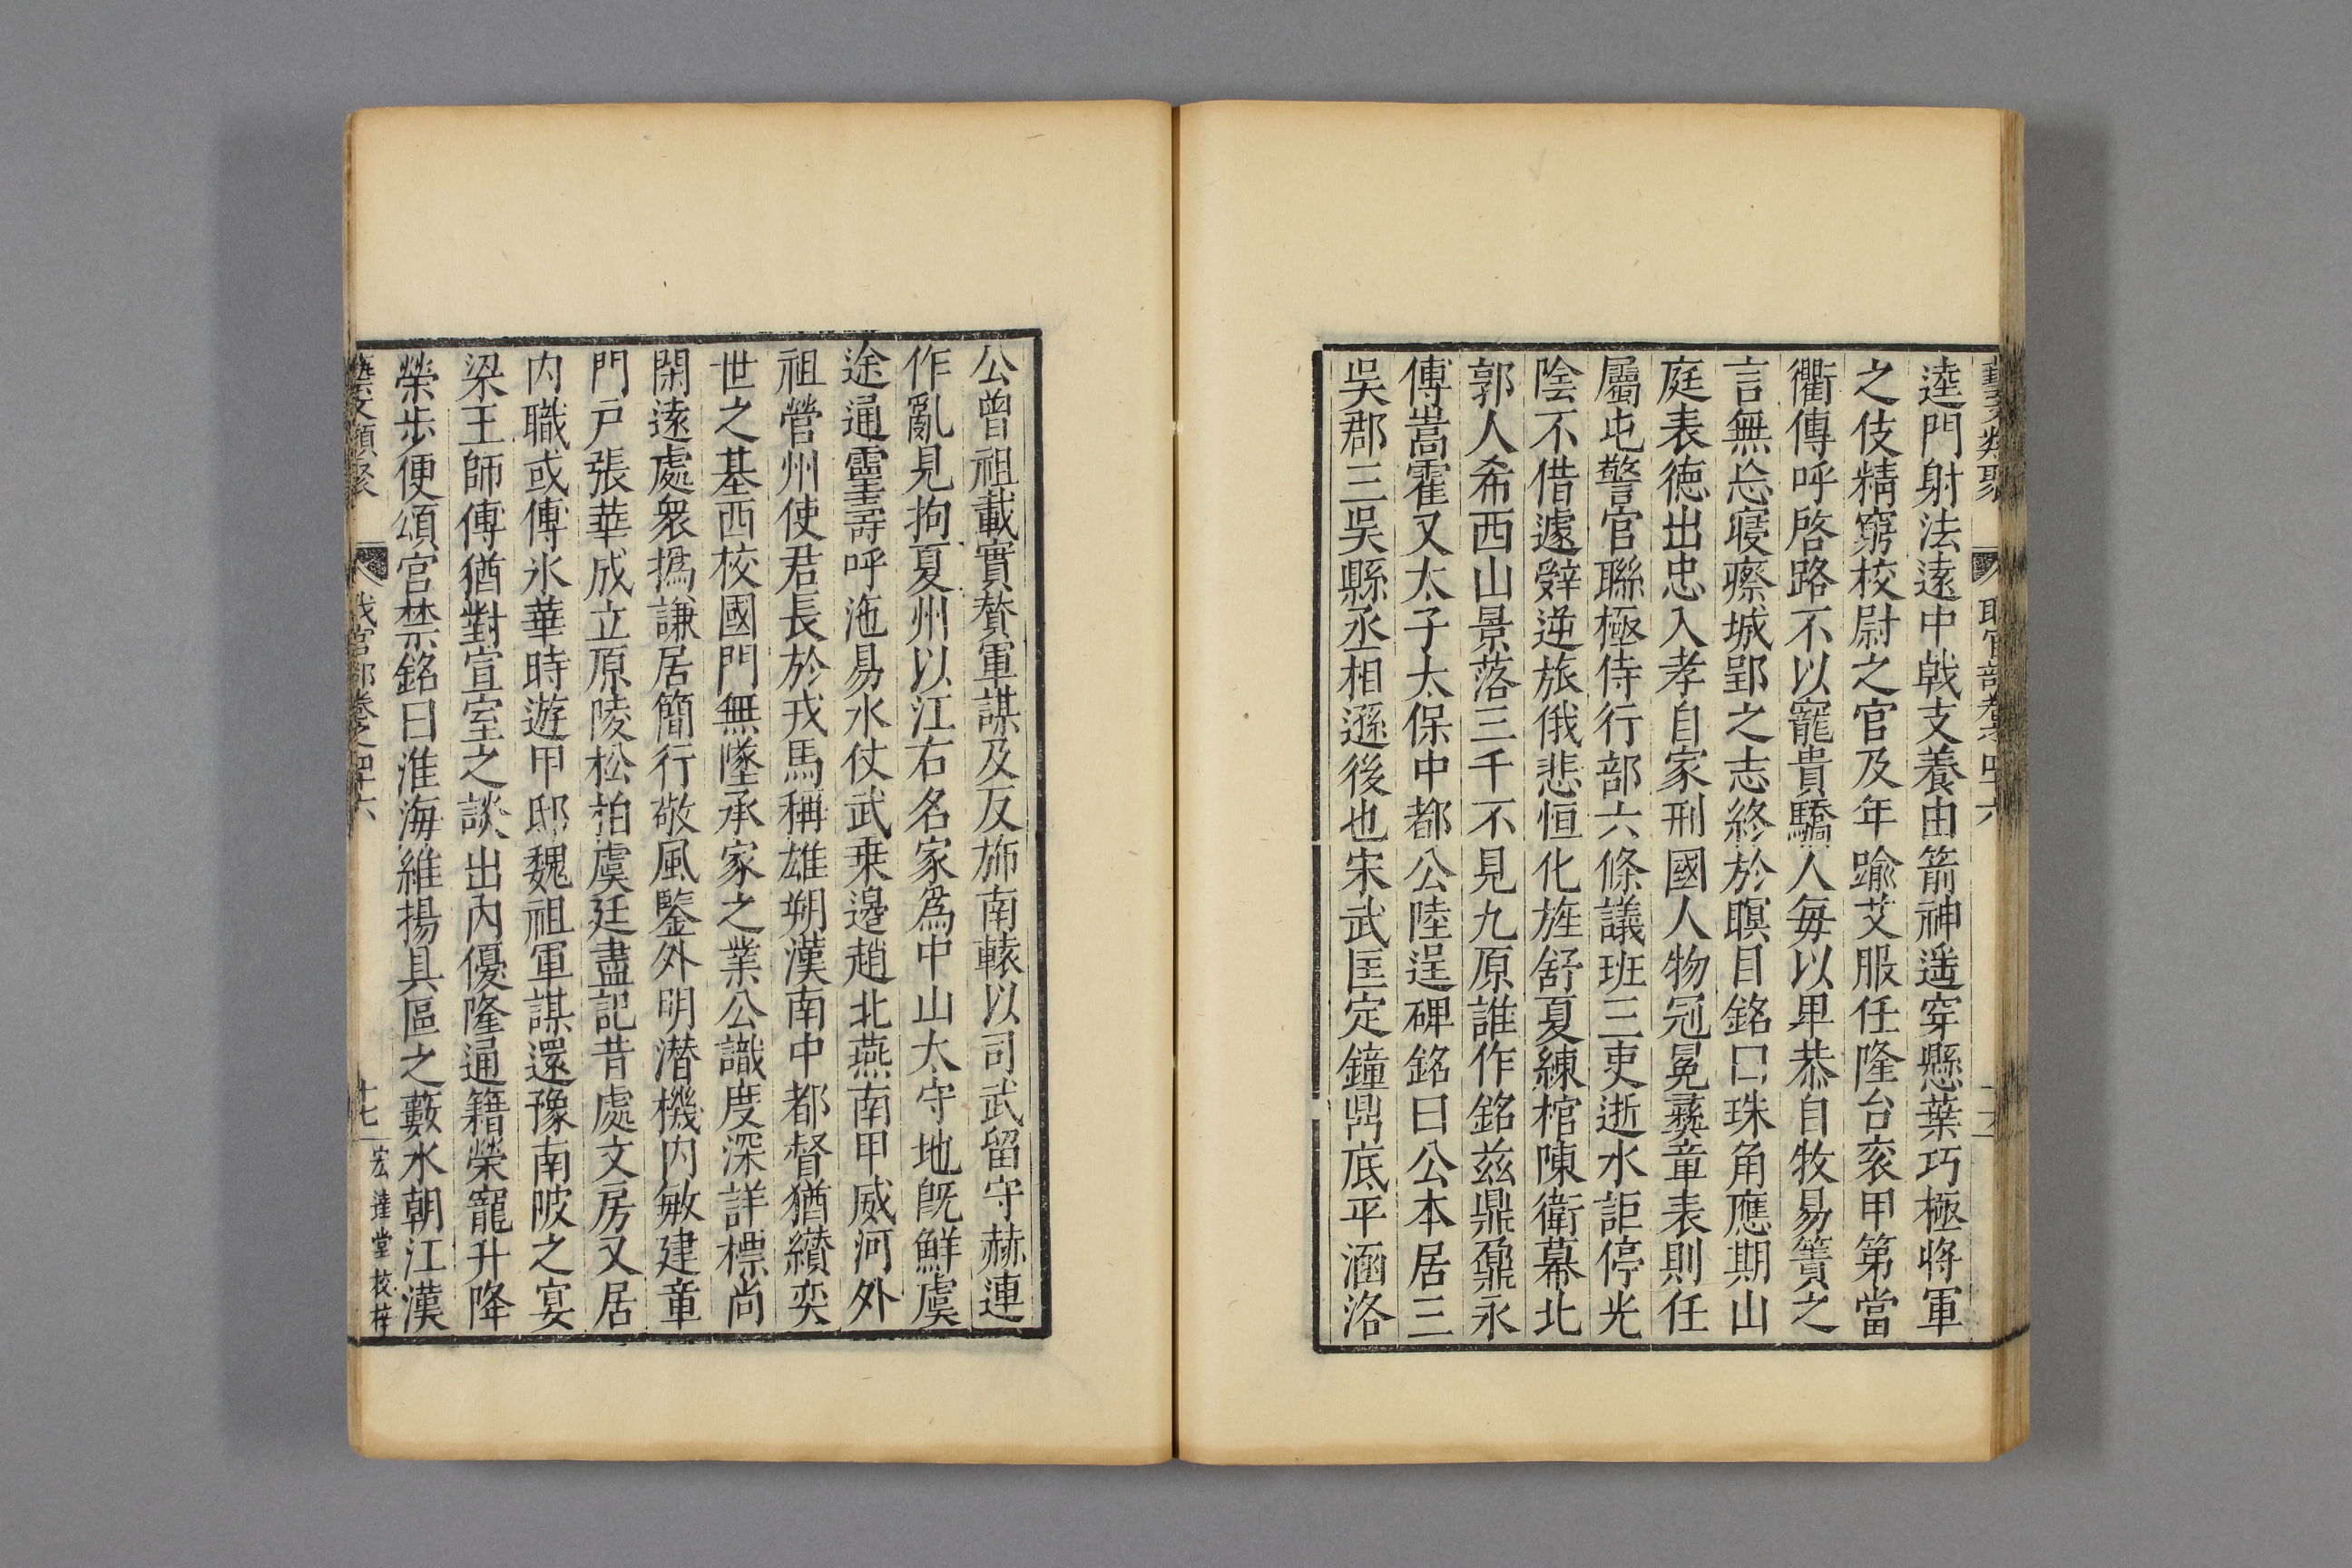 藝文類聚 職官部卷之四十六
逵門射法遠中戟支養由箭神遥穿懸葉巧極將軍
之伎精窮校尉之官及年踰艾服任隆台衮甲第當
衢傳呼啓路不以寵貴驕人毎以卑恭自牧易簀之
言無忘寝瘵城郢之志終於瞑目銘曰珠角應期山
庭表徳出忠入孝自家刑國人物冠冕彝章表則任
屬屯警官聯極侍行部六條議班三吏逝水詎停光
陰不借遽辤逆旅俄悲恒化旌舒夏練棺陳衛幕北
郭人希西山景落三千不見九原誰作銘兹鼎鼐永
傳嵩霍又太子太保中都公陸逞碑銘曰公本居三
吳郡三吳縣丞相遜後也宋武匡定鐘鼎底平涵洛
公曾祖載實賛軍謀及反斾南轅以司武留守赫連
作亂見拘夏州以江右名家為中山太守地旣鮮虞
途通靈壽呼沲易水仗武乗邉趙北燕南甲威河外
祖營州使君長於戎馬稱雄朔漠南中都督猶纉奕
世之基西校國門無墜承家之業公識度深詳標尚
閑遠處衆撝謙居簡行敬風鑒外明潜機内敏建章
門戸張華成立原陵松柏虞廷盡記昔處文房又居
内職或傳氷華時遊甲邸魏祖軍謀還豫南陂之宴
梁王師傅猶對宣室之談出内優隆通籍榮寵升降
榮歩便頌宫禁銘曰淮海維揚具區之藪水朝江漢
藝文類聚 職官部卷之四十六 十七 宏達堂校梓